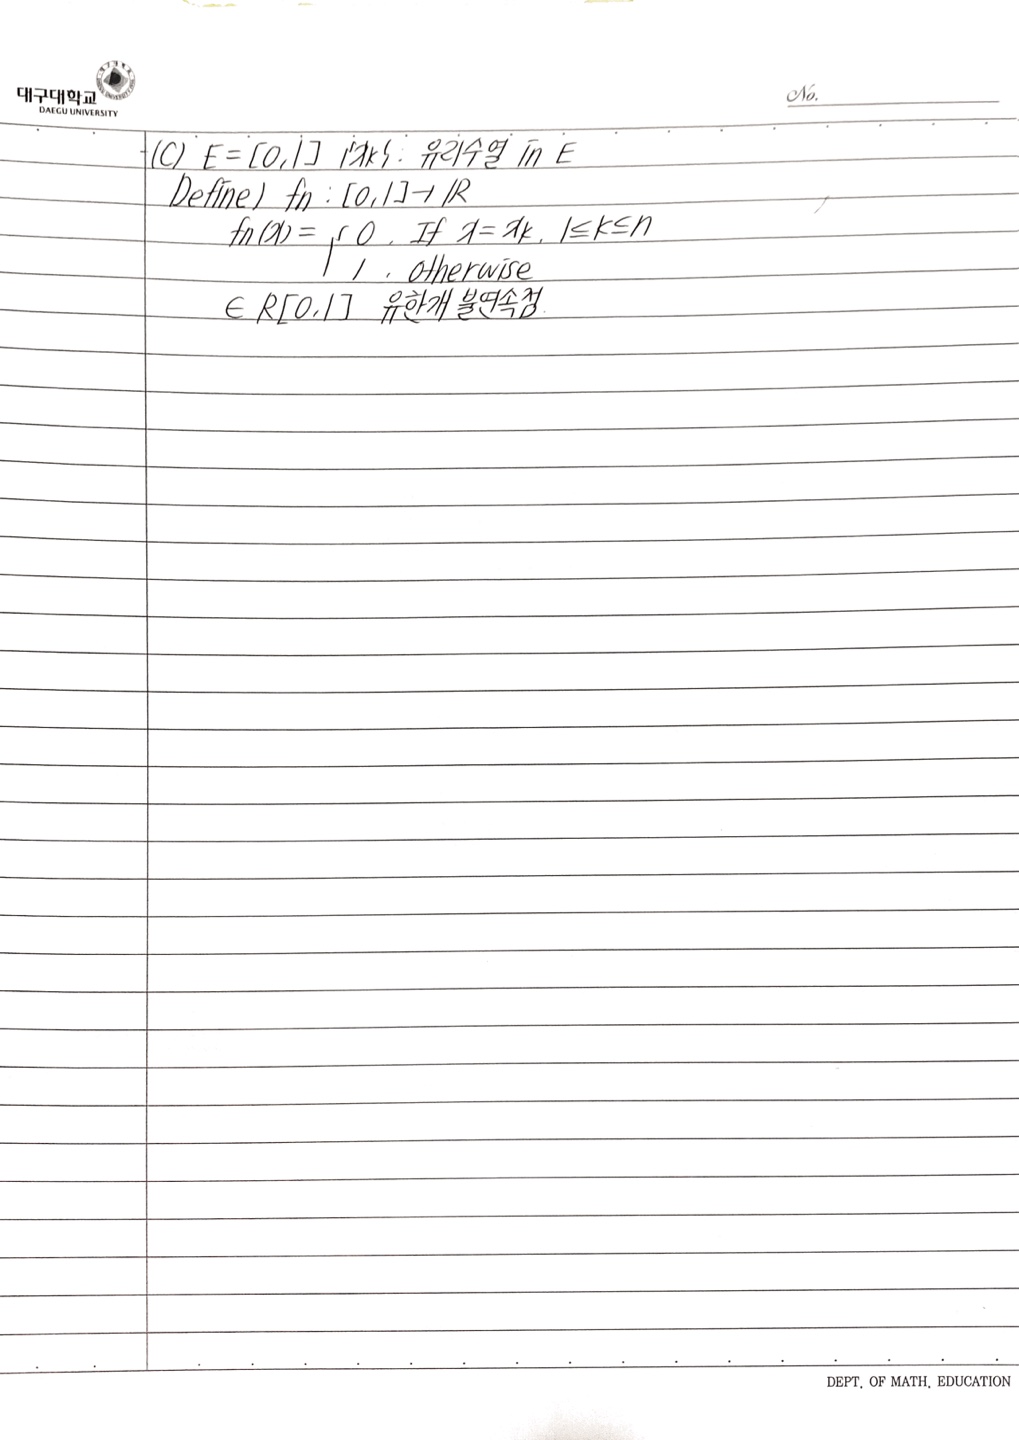 대구대학교
DAEGU UNIVERSITY
No.
(C) E = [0,1] {xk}: 유리수열 in E
Define) fn : [0,1] → ℝ
fn(x) = { 0 , If x = xk, 1≤k≤n
1 , otherwise
∈ R[0,1] 유한개 불연속점.
DEPT. OF MATH. EDUCATION